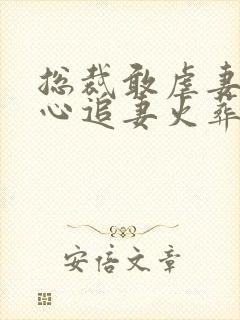 总裁敢虐妻
心追妻火葬
安倍文章